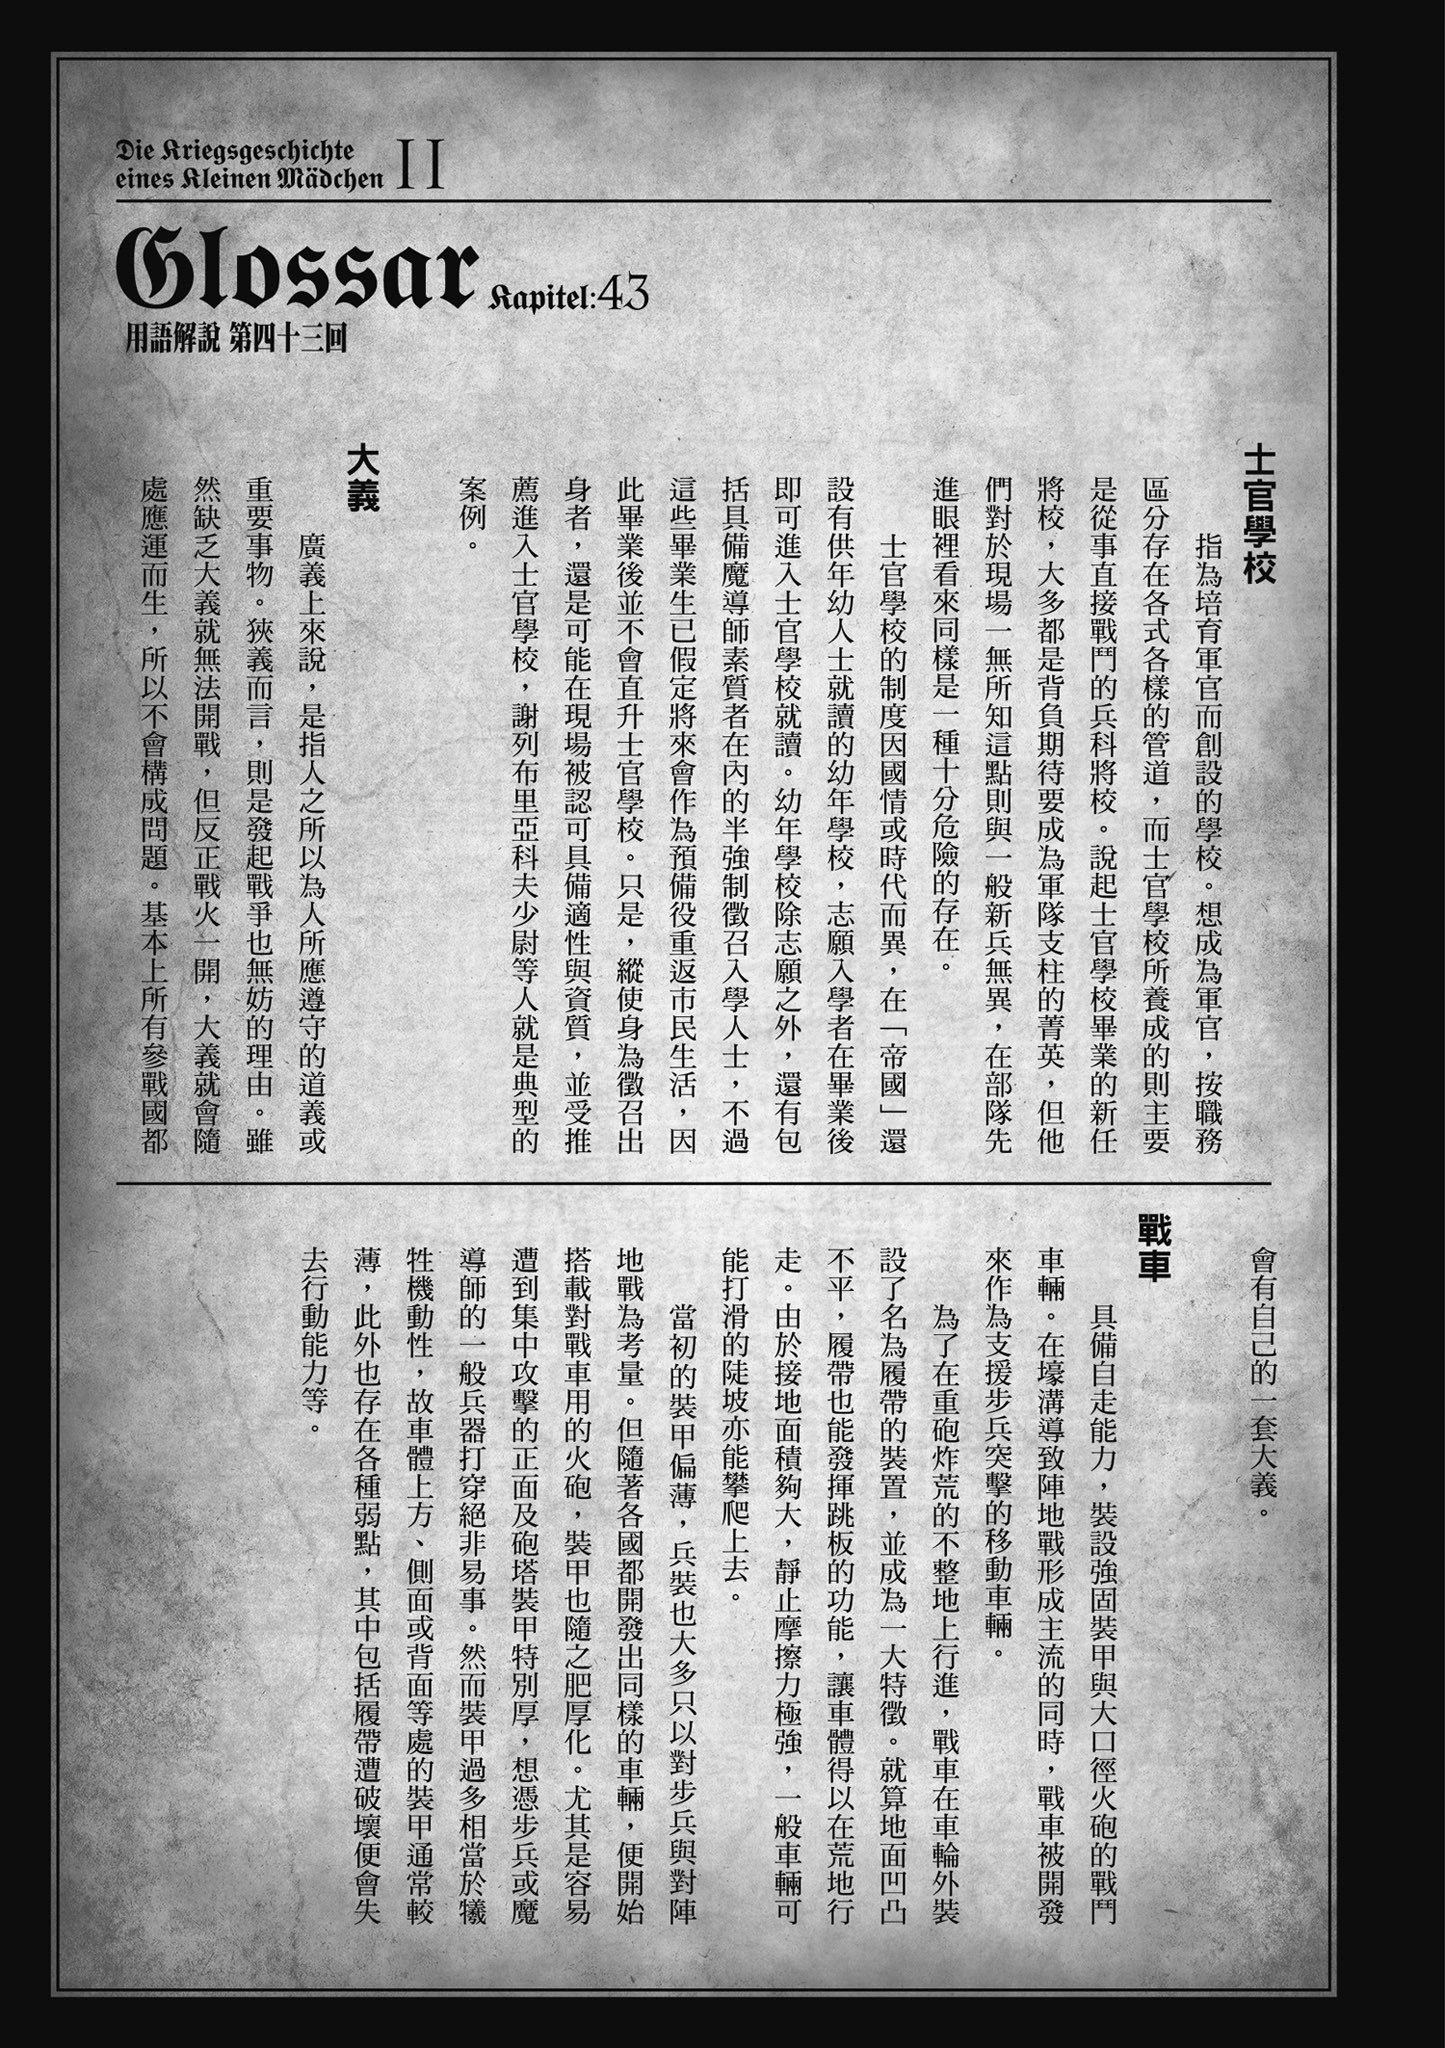 Die Kriegsgeschichte
eines Kleinen Mädchen II
Glossar Kapitel:43
用語解說 第四十三回
士官學校
指為培育軍官而創設的學校。想成為軍官，按職務
區分存在各式各樣的管道，而士官學校所養成的則主要
是從事直接戰鬥的兵科將校。說起士官學校畢業的新任
將校，大多都是背負期待要成為軍隊支柱的菁英，但他
們對於現場一無所知這點則與一般新兵無異，在部隊先
進眼裡看來同樣是一種十分危險的存在。
士官學校的制度因國情或時代而異，在「帝國」還
設有供年幼人士就讀的幼年學校，志願入學者在畢業後
即可進入士官學校就讀。幼年學校除志願之外，還有包
括具備魔導師素質者在內的半強制徵召入學人士，不過
這些畢業生已假定將來會作為預備役重返市民生活，因
此畢業後並不會直升士官學校。只是，縱使身為徵召出
身者，還是可能在現場被認可具備適性與資質，並受推
薦進入士官學校，謝列布里亞科夫少尉等人就是典型的
案例。
大義
廣義上來說，是指人之所以為人所應遵守的道義或
重要事物。狹義而言，則是發起戰爭也無妨的理由。雖
然缺乏大義就無法開戰，但反正戰火一開，大義就會隨
處應運而生，所以不會構成問題。基本上所有參戰國都
會有自己的一套大義。
戰車
具備自走能力，裝設強固裝甲與大口徑火砲的戰鬥
車輛。在壕溝導致陣地戰形成主流的同時，戰車被開發
來作為支援步兵突擊的移動車輛。
為了在重砲炸荒的不整地上行進，戰車在車輪外裝
設了名為履帶的裝置，並成為一大特徵。就算地面凹凸
不平，履帶也能發揮跳板的功能，讓車體得以在荒地行
走。由於接地面積夠大，靜止摩擦力極強，一般車輛可
能打滑的陡坡亦能攀爬上去。
當初的裝甲偏薄，兵裝也大多只以對步兵與對陣
地戰為考量。但隨著各國都開發出同樣的車輛，便開始
搭載對戰車用的火砲，裝甲也隨之肥厚化。尤其是容易
遭到集中攻擊的正面及砲塔裝甲特別厚，想憑步兵或魔
導師的一般兵器打穿絕非易事。然而裝甲過多相當於犧
牲機動性，故車體上方、側面或背面等處的裝甲通常較
薄，此外也存在各種弱點，其中包括履帶遭破壞便會失
去行動能力等。